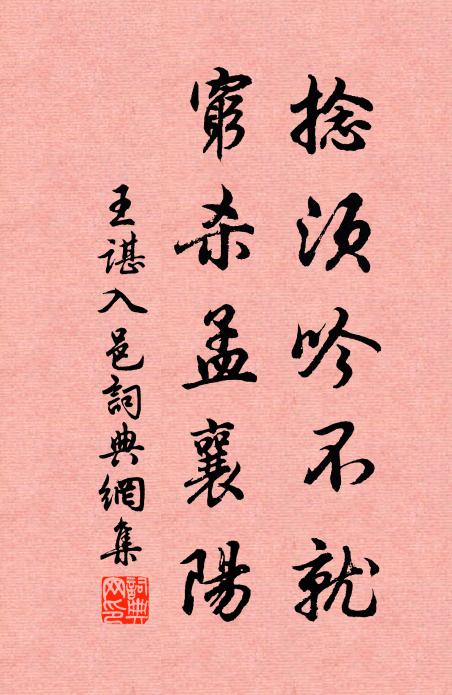 捻须吟不就
窮杀孟襄陽
王諶入邑詞典網集
詞典网印